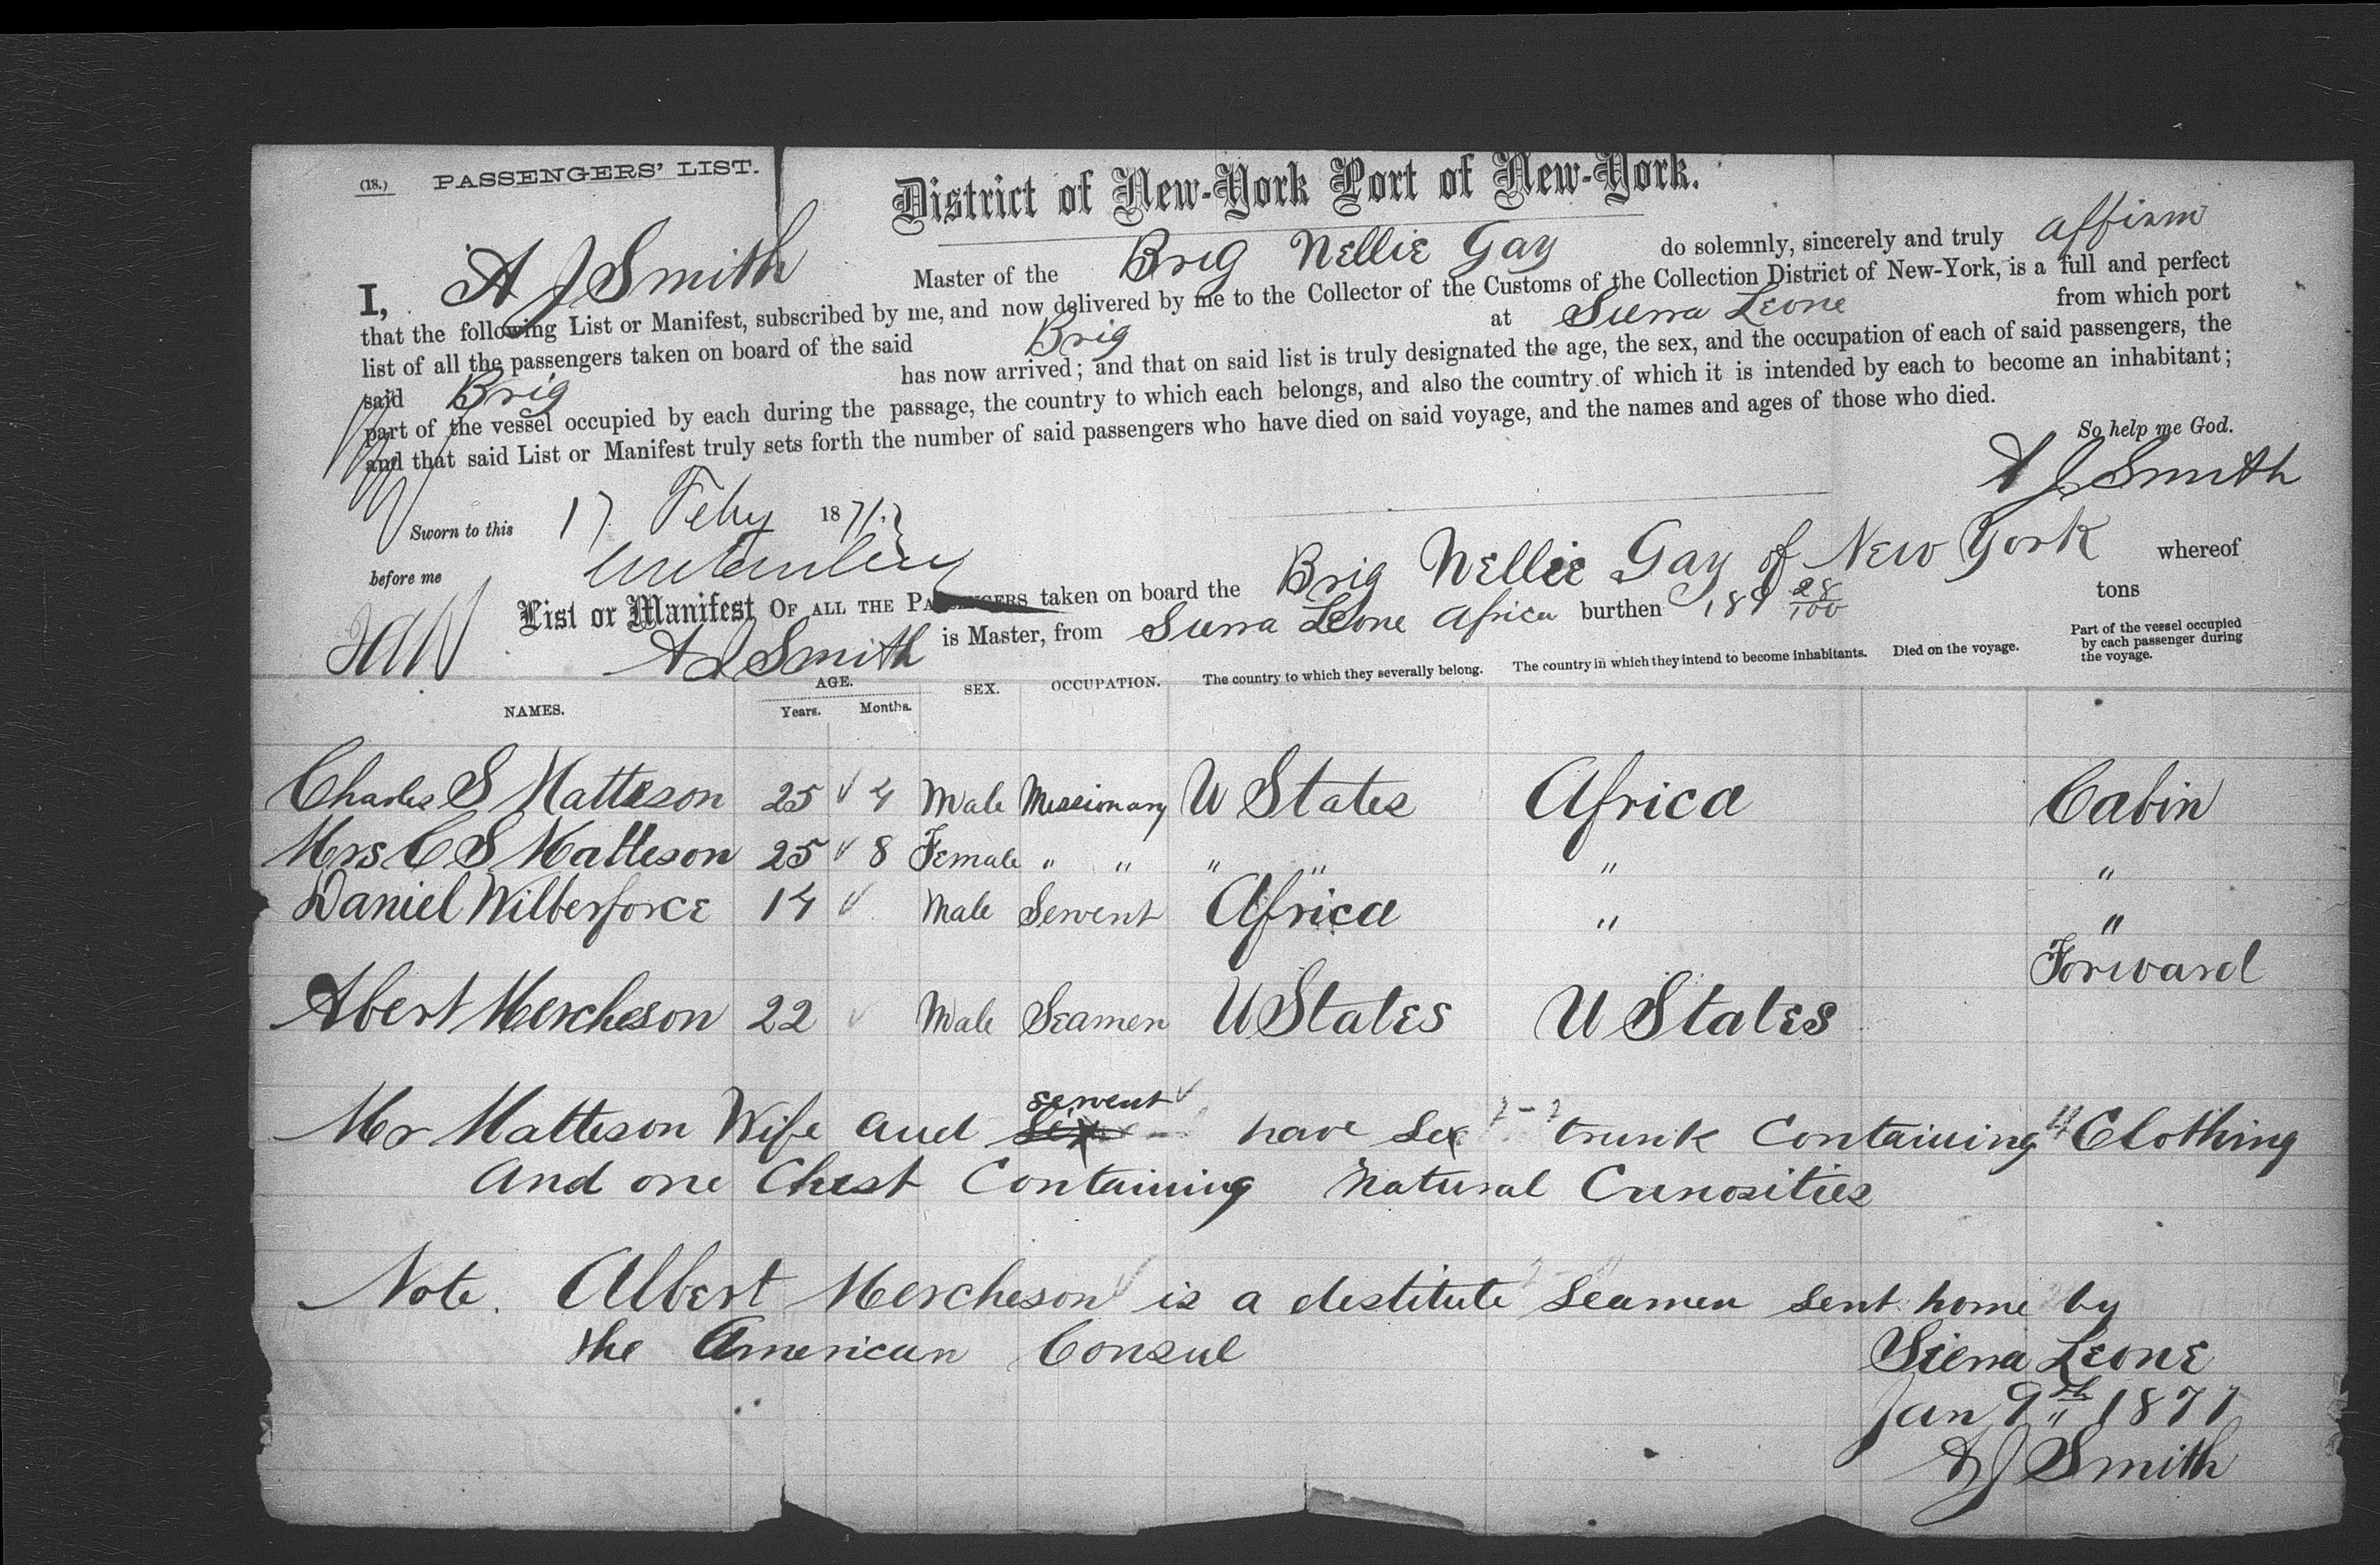 (18.) PASSENGERS' LIST.
District of New-York Port of New-York.
I, A J Smith Master of the Brig Nellie Gay do solemnly, sincerely and truly affirm
that the following List or Manifest, subscribed by me, and now delivered by me to the Collector of the Customs of the Collection District of New-York, is a full and perfect
list of all the passengers taken on board of the said Brig at Sierra Leone from which port
said Brig has now arrived; and that on said list is truly designated the age, the sex, and the occupation of each of said passengers, the
part of the vessel occupied by each during the passage, the country to which each belongs, and also the country of which it is intended by each to become an inhabitant;
and that said List or Manifest truly sets forth the number of said passengers who have died on said voyage, and the names and ages of those who died.
So help me God.
A J Smith
Sworn to this 17 Feby 1871
before me
List or Manifest OF ALL THE PASSENGERS taken on board the Brig Nellie Gay of New York whereof
A J Smith is Master, from Sierra Leone Africa burthen 189 28/100 tons
NAMES. AGE. Years. Months. SEX. OCCUPATION. The country to which they severally belong. The country in which they intend to become inhabitants. Died on the voyage. Part of the vessel occupied by each passenger during the voyage.
Charles S Matteson 25 4 Male Missionary U States Africa Cabin
Mrs C S Matteson 25 8 Female " " " " " "
Daniel Wilberforce 14 Male Servent Africa " "
Forward
Abert Mercheson 22 Male Seamen U States U States
servent
Mr Matteson Wife and Six have Six trunk Containing Clothing
and one Chest Containing Natural Curiosities
Note. Albert Mercheson is a destitute Seamen Sent home by
the American Consul
Sierra Leone
Jan 9th 1871
A J Smith